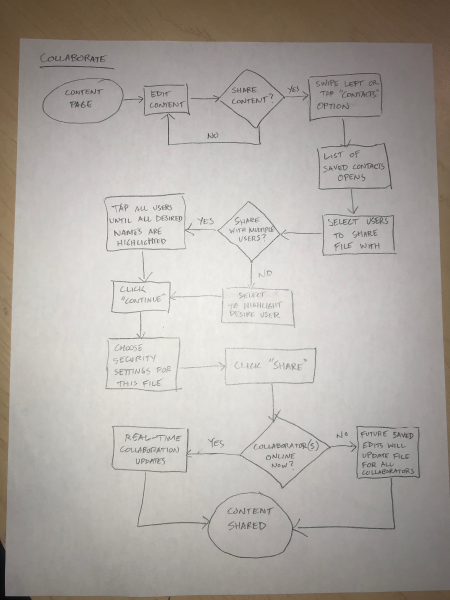 COLLABORATE
CONTENT
PAGE
EDIT
CONTENT
SHARE
CONTENT?
YES
SWIPE LEFT OR
TAP "CONTACTS"
OPTION
NO
LIST OF
SAVED CONTACTS
OPENS
SELECT USERS
TO SHARE
FILE WITH
SHARE
WITH MULTIPLE
USERS?
YES
TAP ALL USERS
UNTIL ALL DESIRED
NAMES ARE
HIGHLIGHTED
NO
SELECT
TO HIGHLIGHT
DESIRE USER
CLICK
"CONTINUE"
CHOOSE
SECURITY
SETTINGS FOR
THIS FILE
CLICK "SHARE"
COLLABORATOR(S)
ONLINE
NOW?
YES
REAL-TIME
COLLABORATION
UPDATES
NO
FUTURE SAVED
EDITS WILL
UPDATE FILE
FOR ALL
COLLABORATORS
CONTENT
SHARED